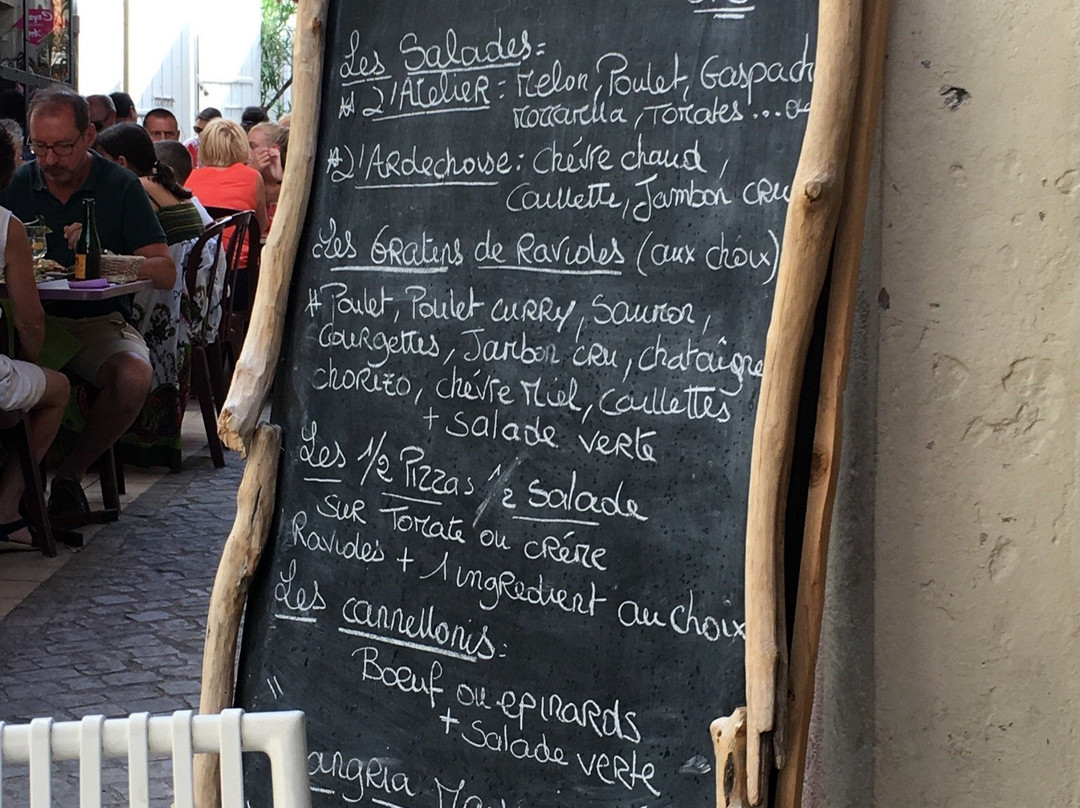 Les Salades:
* L'Atelier : Melon, Poulet, Gaspach
Mozzarella, Tomates ...
* L'Ardechoise : Chévre chaud,
Caillette, Jambon cru
Les Gratins de Ravioles (aux choix)
* Poulet, Poulet curry, Saumon,
Courgettes, Jambon cru, chataîgne
chorizo, chévre Miel, caillettes
+ salade verte
Les 1/2 Pizzas 1/2 salade
sur Tomate ou créme
Ravioles + 1 ingredient au choix
Les cannellonis:
Boeuf ou epinards
+ salade verte
angria